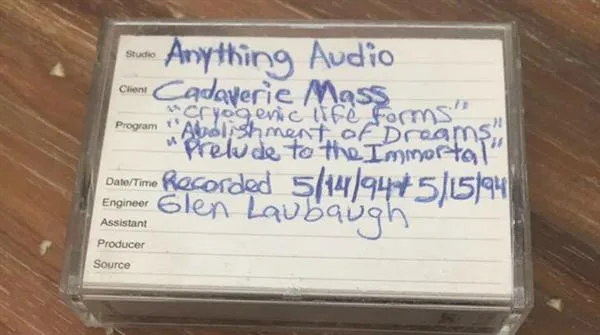 Studio Anything Audio
Client Cadaveric Mass
"Cryogenic life forms"
Program "Abolishment of Dreams"
"Prelude to the Immortal"
Date/Time Recorded 5/14/94 + 5/15/94
Engineer Glen Laubaugh
Assistant
Producer
Source